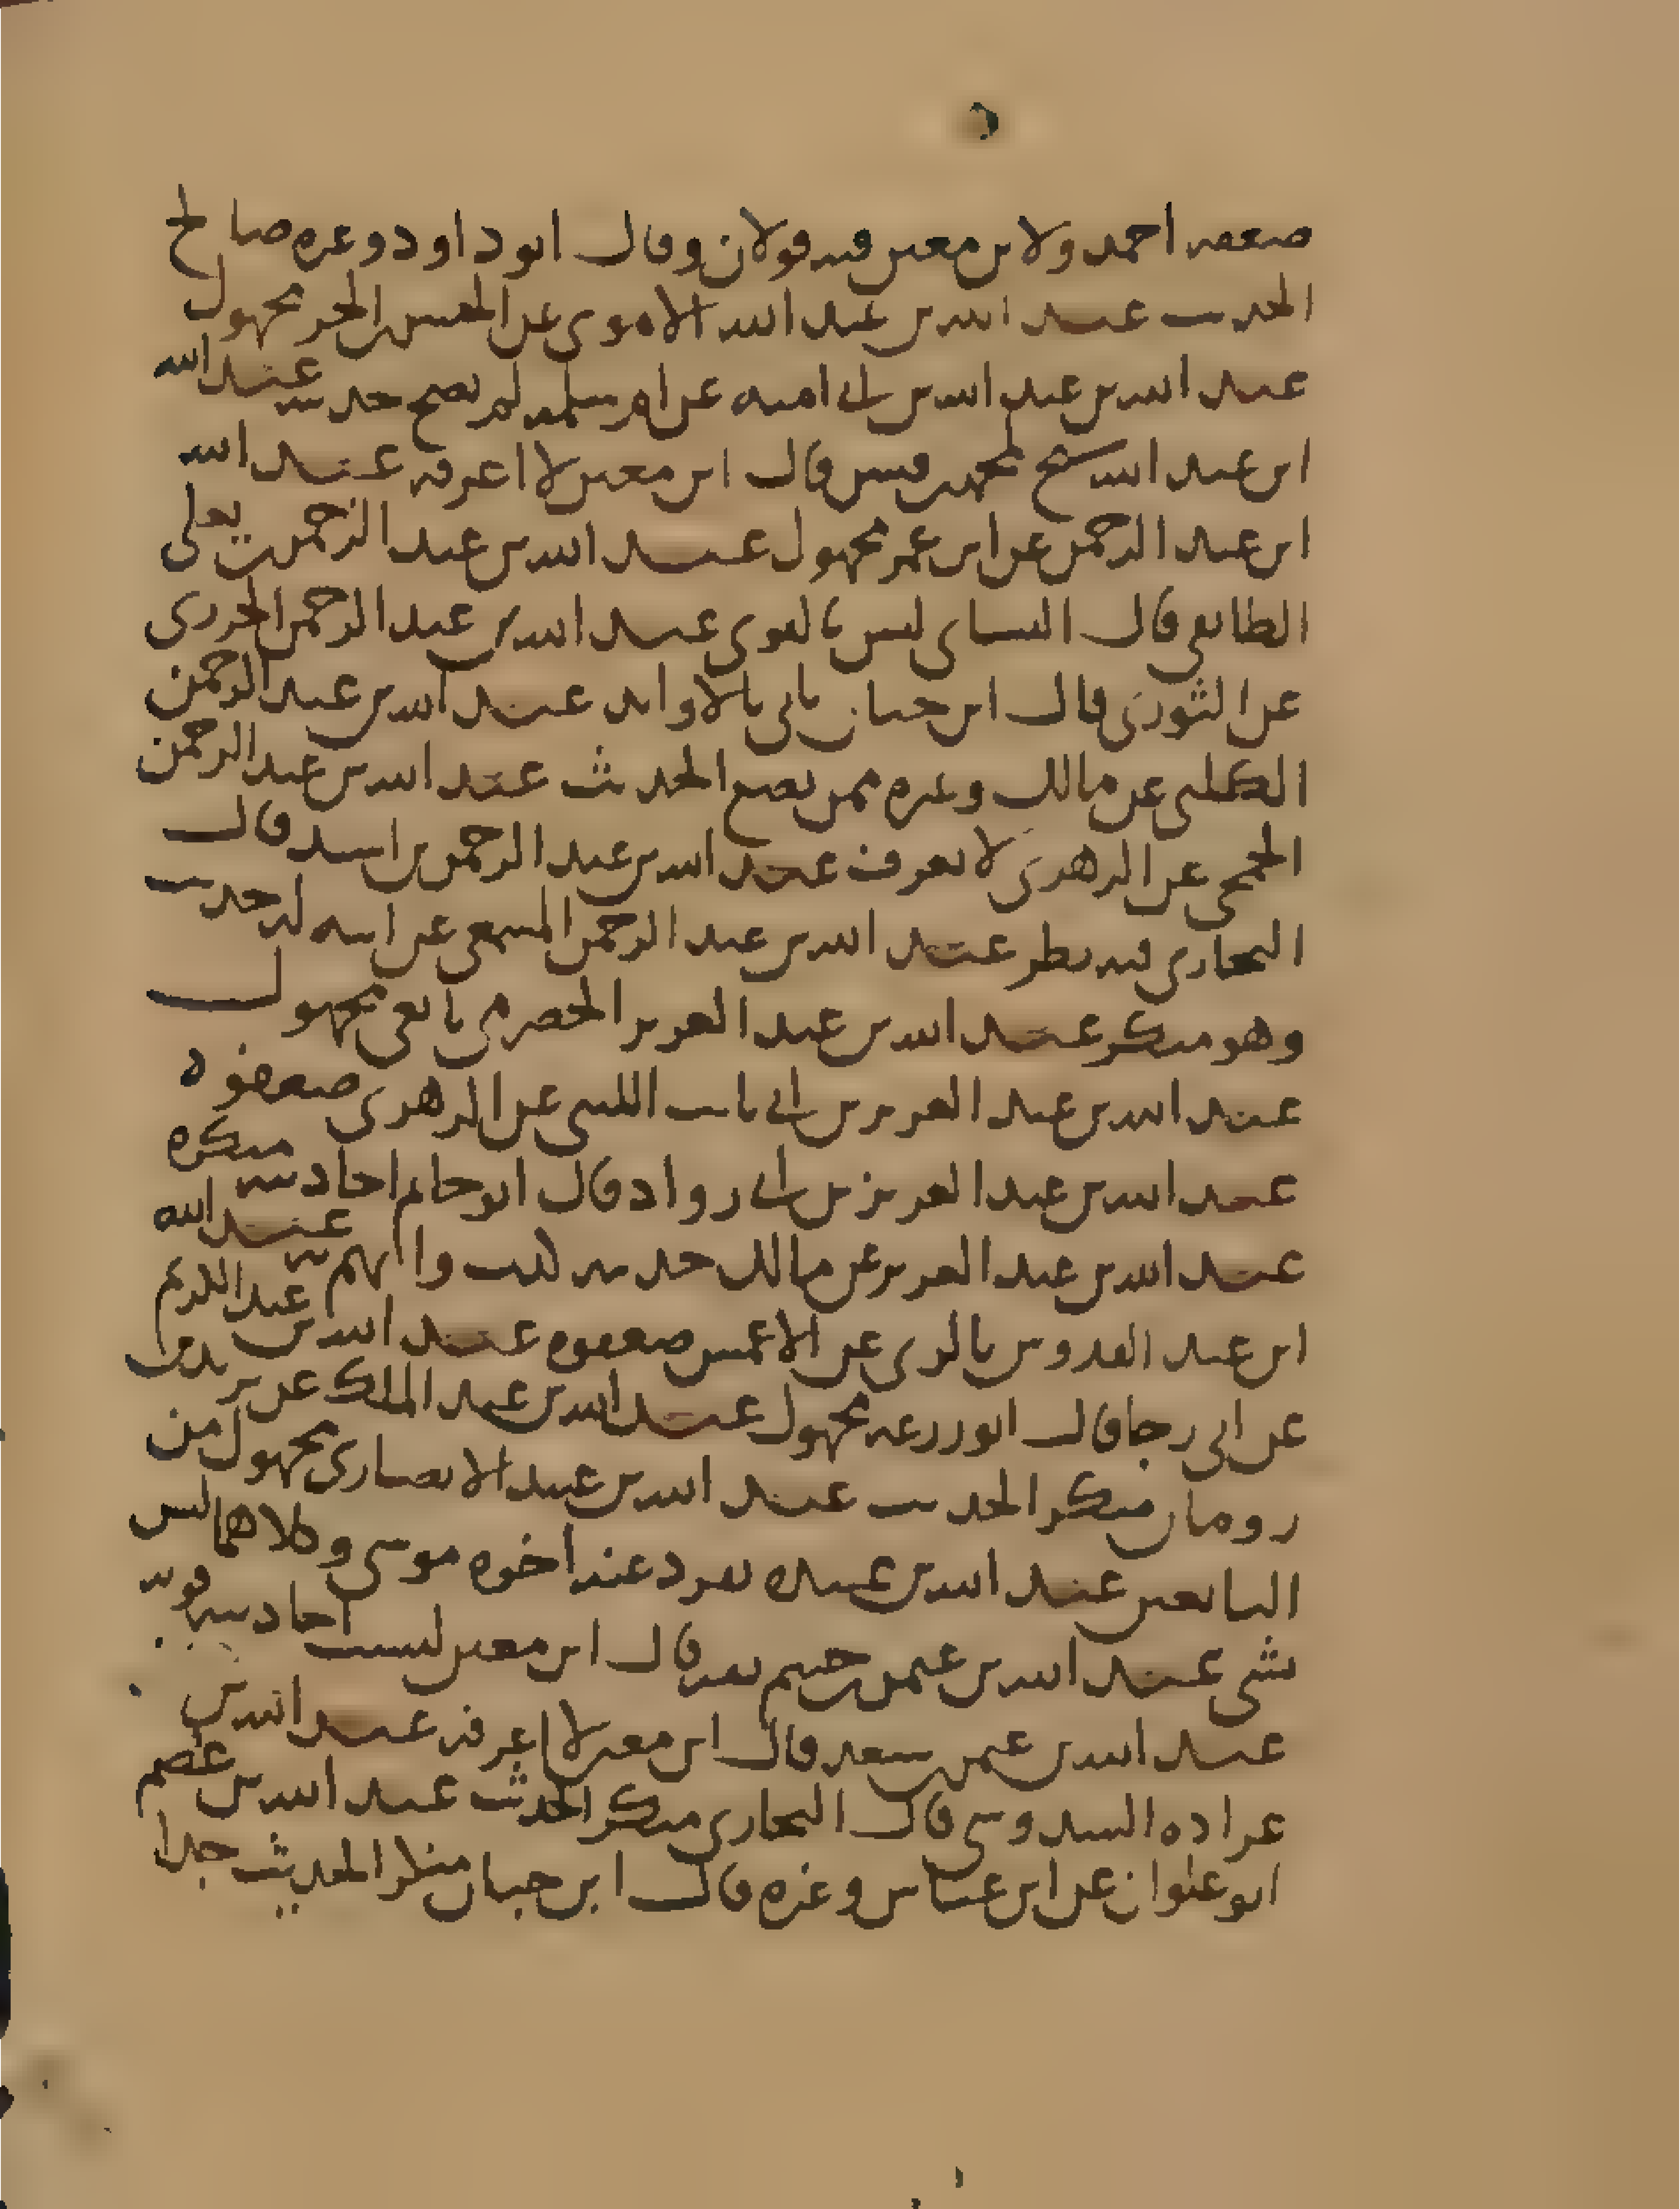 ضعفه احمد ولابن معين فيه قولان وقال ابو داود وغيره صالح
الحديث عبد الله بن عبد الله الاموي عن الحسن بن الحر مجهول
عبد الله بن عبد الله بن ابي امية عن ام سلمه لم يصح حديثه عبد الله
ابن عبد الله شيخ لمحمد بن قيس قال ابن معين لا اعرفه عبد الله
ابن عبد الرحمن عن ابن عمر مجهول عبد الله بن عبد الرحمن بن يعلى
الطائفي قال النساى ليس بالقوي عبد الله بن عبد الرحمن الجزري
عن الثوري قال ابن حبان ياتي بالاوابد عبد الله بن عبد الرحمن
الكلبي عن مالك وغيره ممن يضع الحديث عبد الله بن عبد الرحمن
الجمحي عن الزهري لا يعرف عبد الله بن عبد الرحمن بن اسيد قال
البخاري فيه نظر عبد الله بن عبد الرحمن المسمعي عن ابيه له حديث
وهو منكر عبد الله بن عبد العزيز الحضرمي تابعي مجهول
عبد الله بن عبد العزيز بن ابي ثابت الليثي عن الزهري ضعفوه
عبد الله بن عبد العزيز بن ابي رواد قال ابو حاتم احاديثه منكره
عبد الله بن عبد العزيز عن مالك حديثه كذب واتهم به عبد الله
ابن عبد القدوس بالري عن الاعمش ضعفوه عبد الله بن عبد الكريم
عن ابي رجا قال ابو زرعه مجهول عبد الله بن عبد الملك عن يزيد بن
رومان منكر الحديث عبد الله بن عبيد الانصاري مجهول من
التابعين عبد الله بن عبيده تفرد عنه اخوه موسى وكلاهما ليس
بشي عبد الله بن عثمن بن خثيم ثقه قال ابن معين ليست احاديثه قويه
عبد الله بن عثمن بن سعد قال ابن معين لا اعرفه عبد الله بن
عراده السدوسي قال البخاري منكر الحديث عبد الله بن عصم
ابو علوان عن ابن عباس وغيره قال ابن حبان منكر الحديث جدا